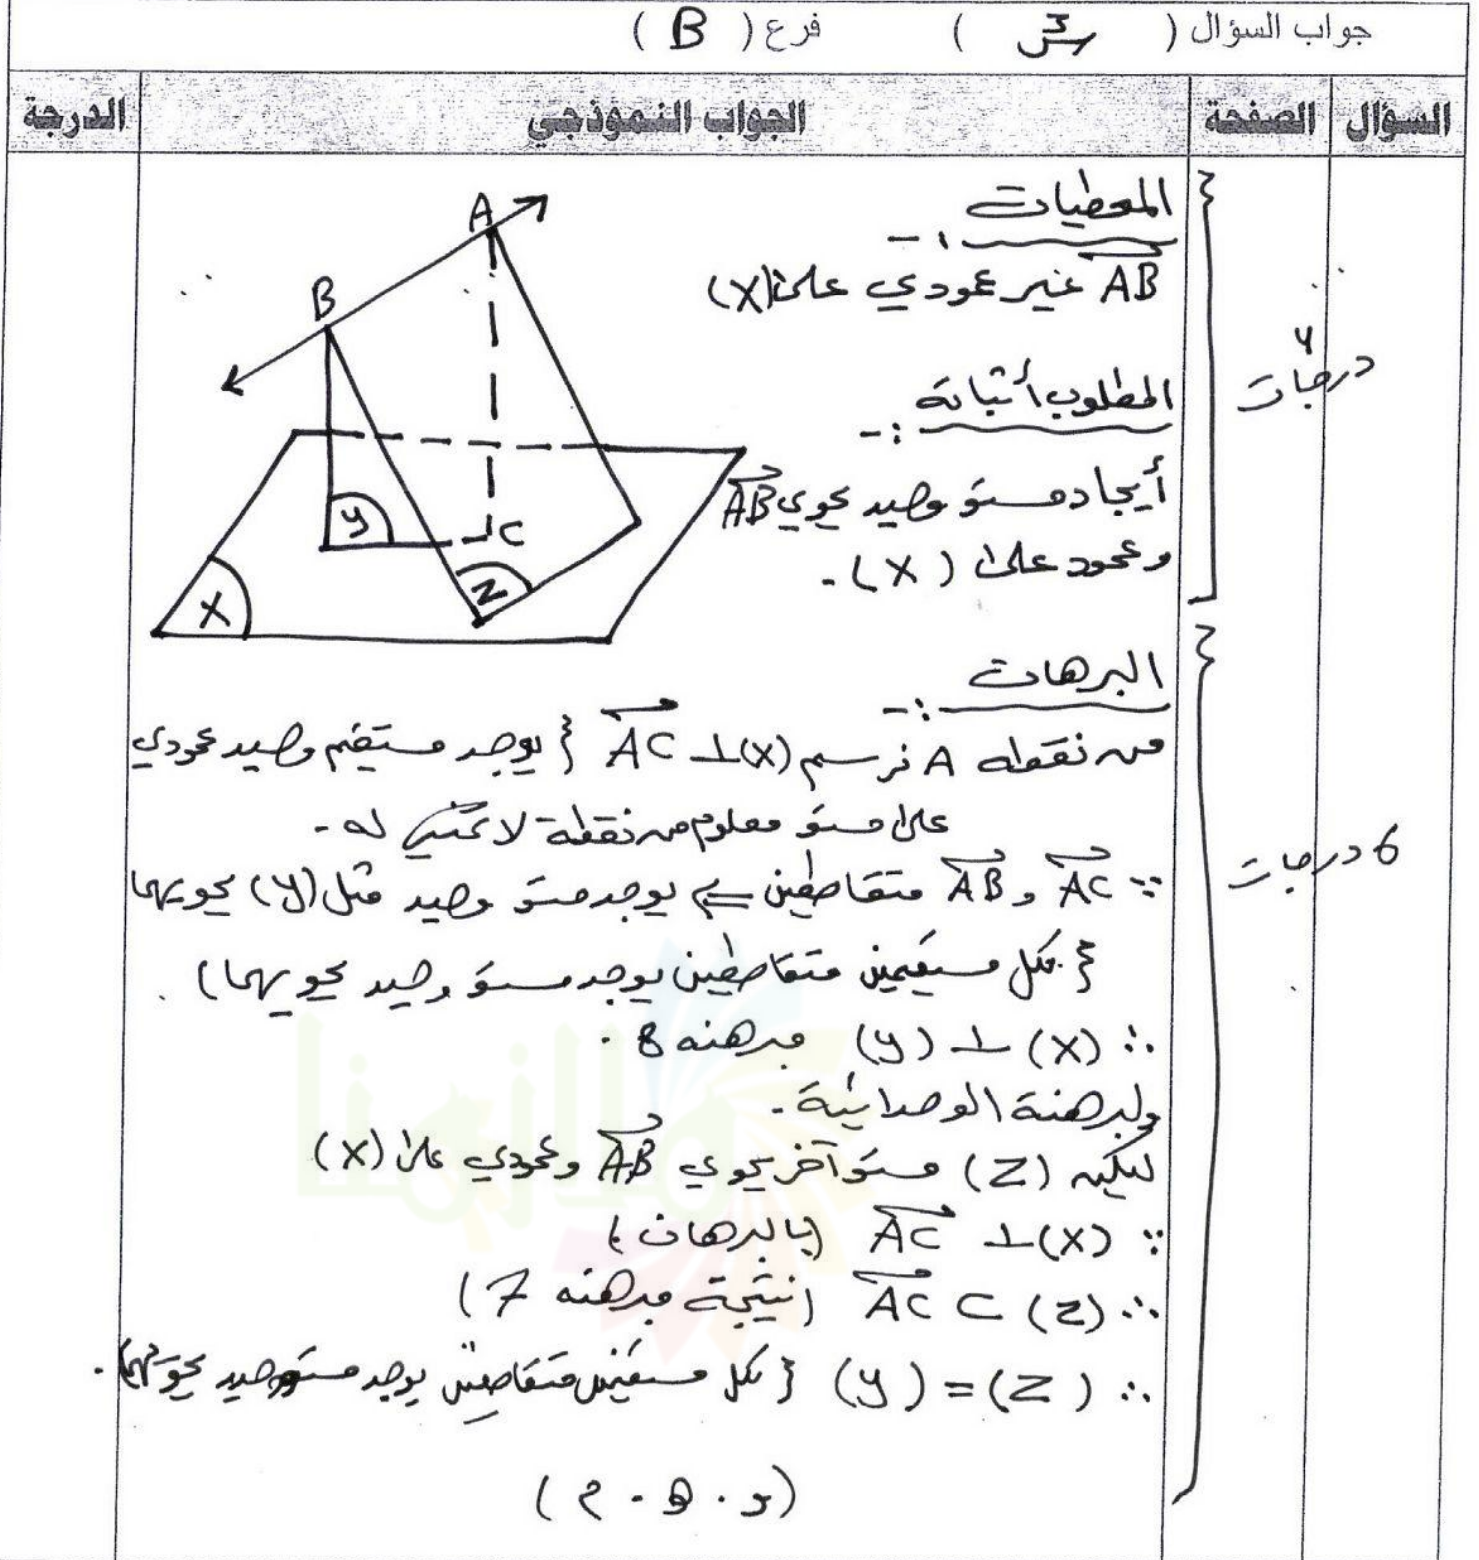 جواب السؤال ( س3 ) فرع ( B )
السؤال الصفحة الجواب النموذجي الدرجة
المعطيات :-
AB غير عمودي على (X)
4 درجات
المطلوب أثباته :-
أيجاد مستوٍ وحيد يحوي AB
وعمود على (X) .
A
B
C
y
Z
X
البرهان :-
من نقطة A نرسم AC ⊥ (X) { يوجد مستقيم وحيد عمودي
على مستوٍ معلوم من نقطة لا تنتمي له .
6 درجات
∵ AC و AB متقاطعين ⇐ يوجد مستوٍ وحيد مثل (y) يحويهما
{ لكل مستقيمين متقاطعين يوجد مستوٍ وحيد يحويهما ) .
∴ (X) ⊥ (y) مبرهنه 8 .
ولبرهنة الوحدانية .
ليكن (Z) مستوٍ آخر يحوي AB وعمودي على (X)
∵ AC ⊥ (X) (بالبرهان)
∴ AC ⊂ (Z) (نتيجة مبرهنه 7)
∴ (Z) = (y) { لكل مستقيمين متقاطعين يوجد مستوٍ وحيد يحويهما) .
(و . ه . م)
ملازمنا